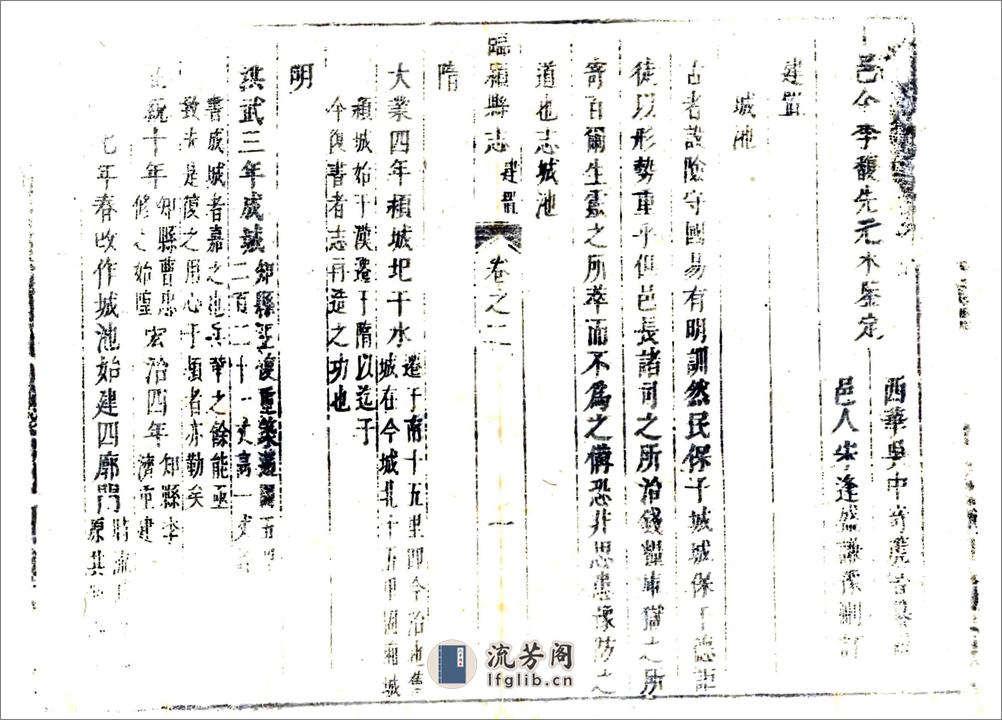 邑令李馥先元木鉴定
西華吳中奇
邑人朱逢盛謙豫
建置
城池
古者設險守國易有明訓然民保于城城保于德詎
徒以形勢重乎但邑長諸司之所治錢糧庫獄之所
寄百爾生靈之所萃而不爲之備恐非思患豫防之
道也志城池
臨潁縣志 建置 卷之二 一
隋
大業四年潁城圮于水 遷于南十五里即今治
城在今城北十五里固廂城
潁城始于漢遷于隋以迄于
今復書者志再造之功也
明
洪武三年成城 知縣王復重築週圍五
二百二十一丈高一丈
書成城者嘉之也兵革之餘能亟
致力是復之用心于潁者亦勤矣
統十年 知縣曹忠
修之始隍
宏治四年 知縣李
清重建
七年春改作城池始建四廓門
原其
流芳阁
lfglib.cn